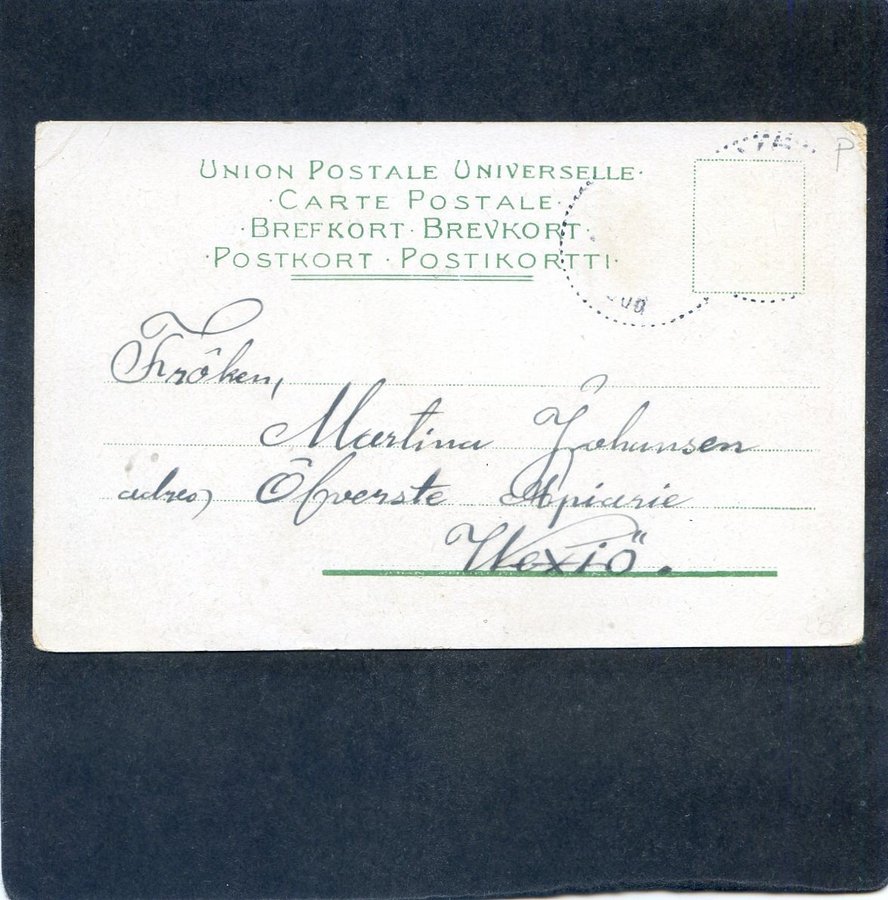 UNION POSTALE UNIVERSELLE·
·CARTE POSTALE·
·BREFKORT·BREVKORT·
·POSTKORT·POSTIKORTTI·
Fröken,
Martina Johansen
adres, Öfverste
Wexiö.
P